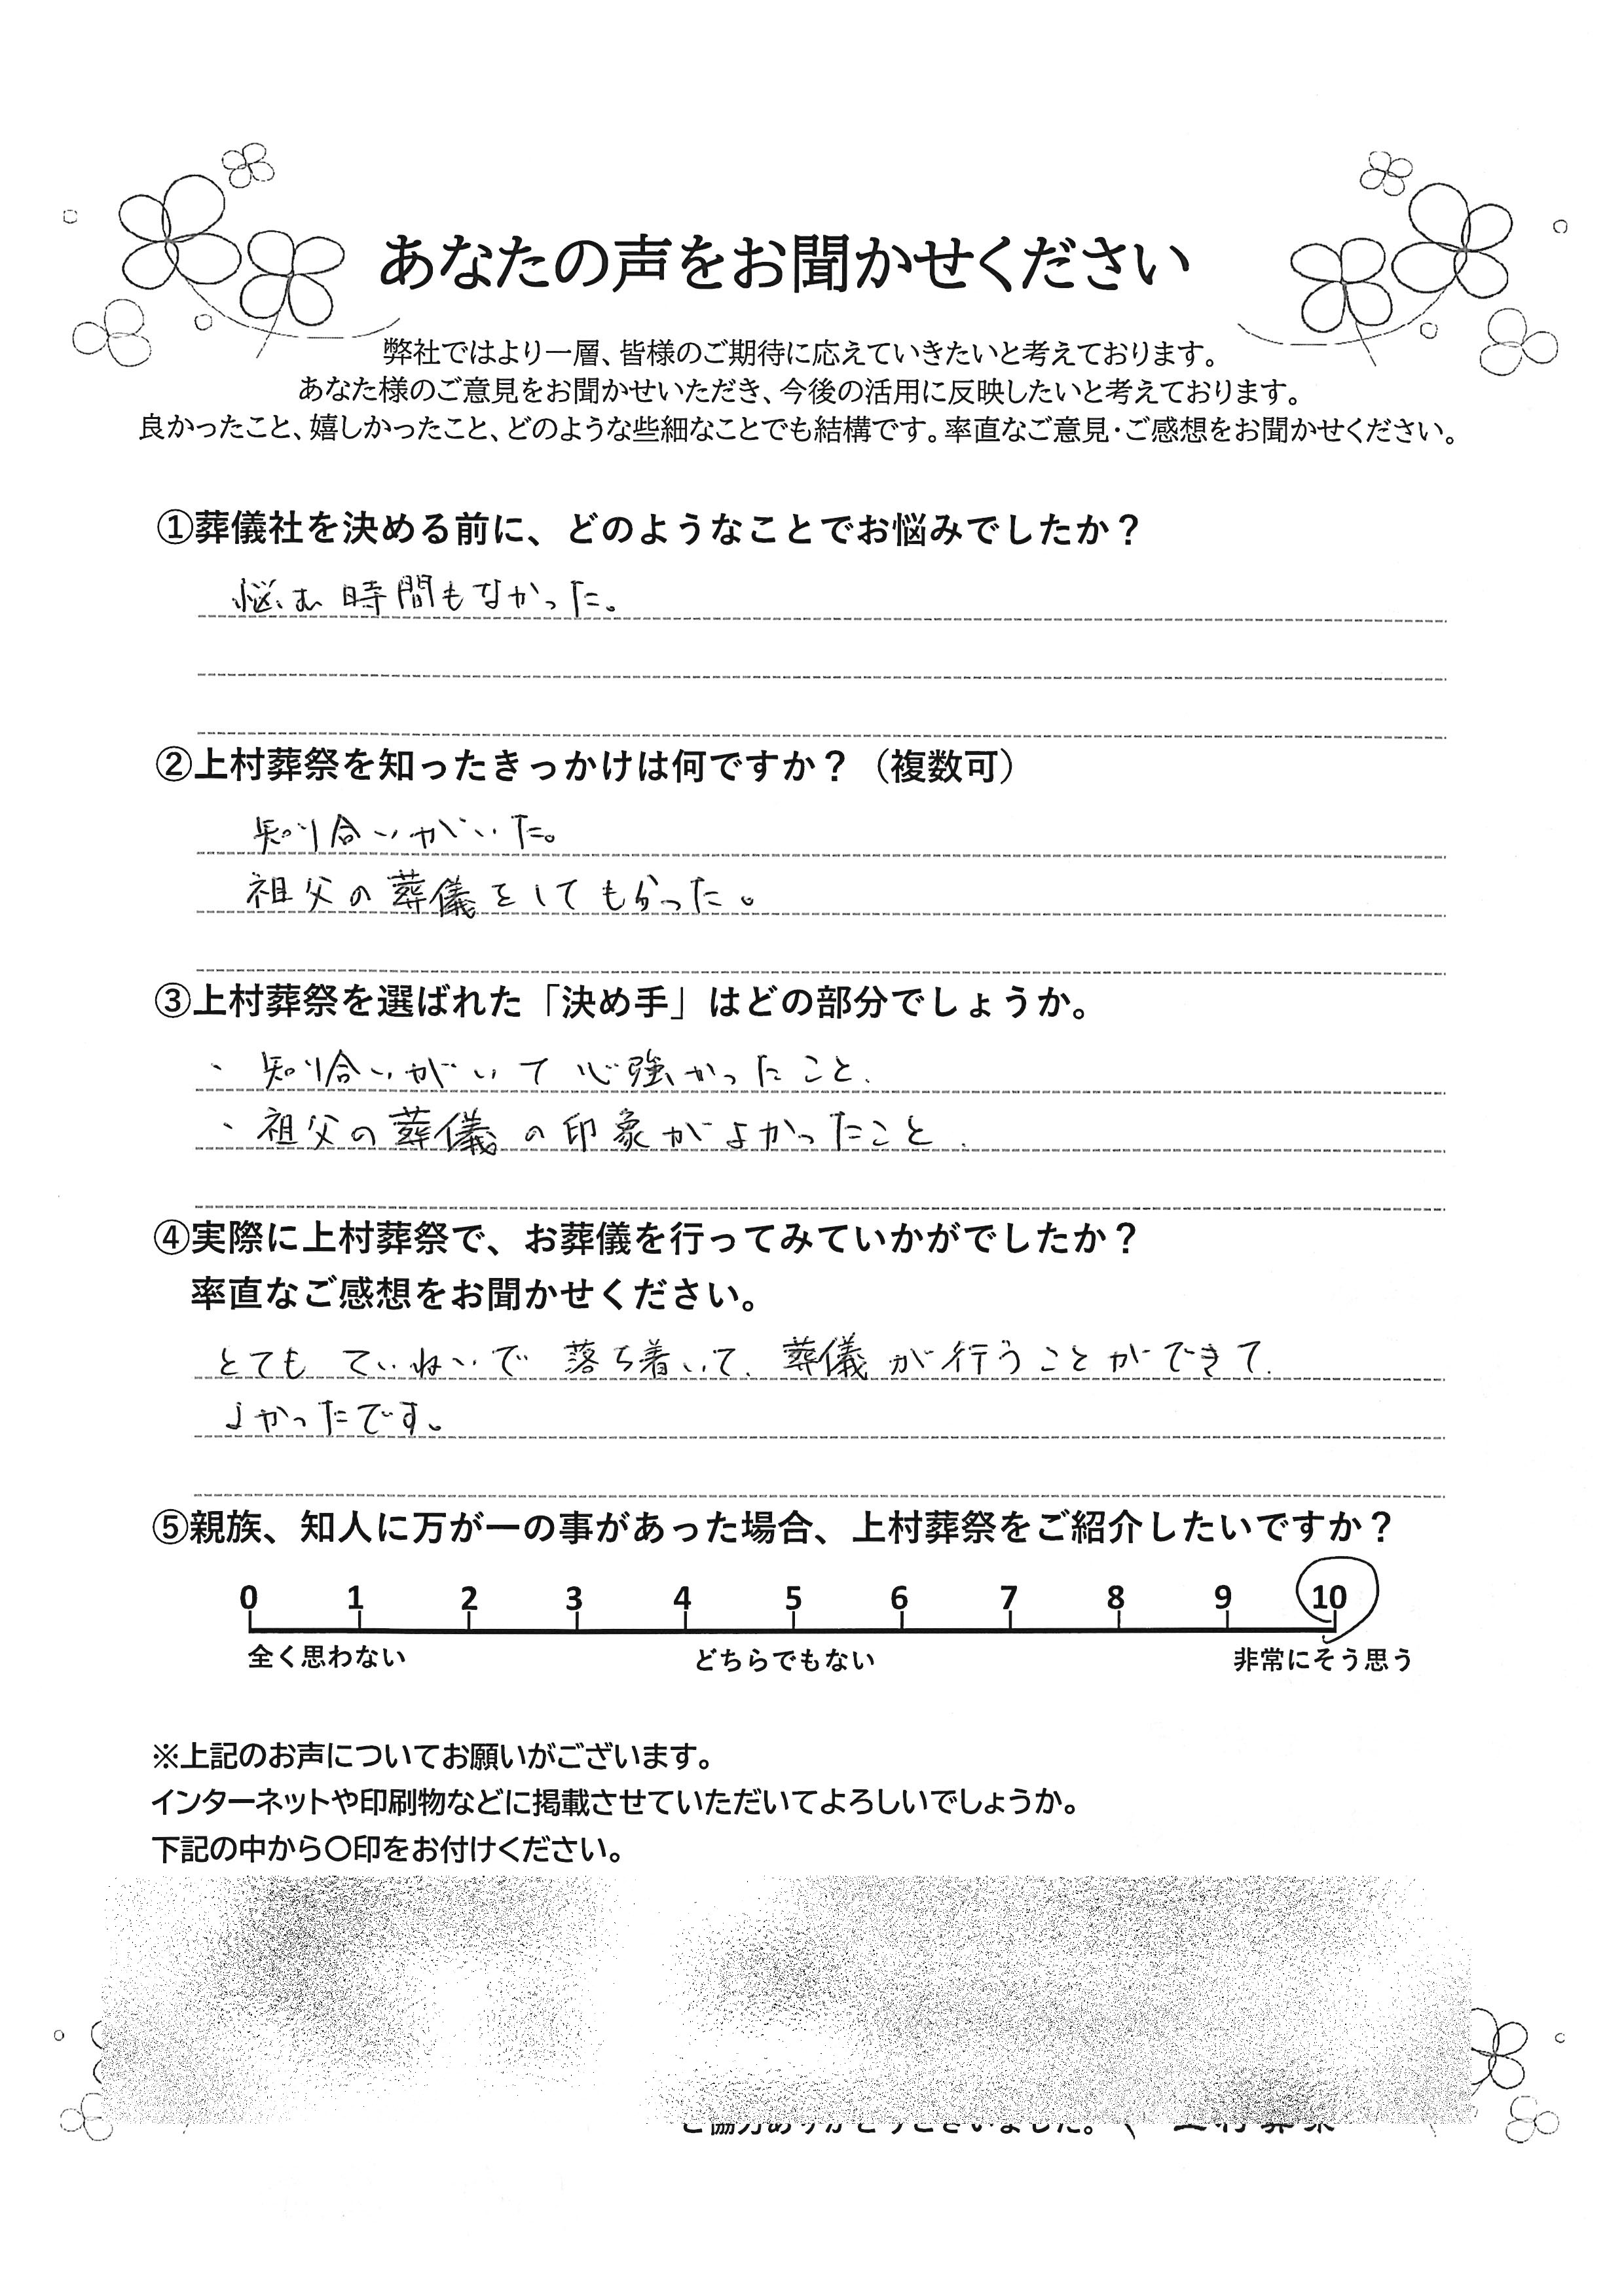 あなたの声をお聞かせください
弊社ではより一層、皆様のご期待に応えていきたいと考えております。
あなた様のご意見をお聞かせいただき、今後の活用に反映したいと考えております。
良かったこと、嬉しかったこと、どのような些細なことでも結構です。率直なご意見・ご感想をお聞かせください。
①葬儀社を決める前に、どのようなことでお悩みでしたか？
悩む時間もなかった。
②上村葬祭を知ったきっかけは何ですか？（複数可）
知り合いがいた。
祖父の葬儀をしてもらった。
③上村葬祭を選ばれた「決め手」はどの部分でしょうか。
・知り合いがいて心強かったこと.
・祖父の葬儀の印象がよかったこと.
④実際に上村葬祭で、お葬儀を行ってみていかがでしたか？
率直なご感想をお聞かせください。
とてもていねいで落ち着いて、葬儀が行うことができて、
よかったです。
⑤親族、知人に万が一の事があった場合、上村葬祭をご紹介したいですか？
0 1 2 3 4 5 6 7 8 9 10
全く思わない どちらでもない 非常にそう思う
※上記のお声についてお願いがございます。
インターネットや印刷物などに掲載させていただいてよろしいでしょうか。
下記の中から〇印をお付けください。
ご協力ありがとうございました。 上村葬祭